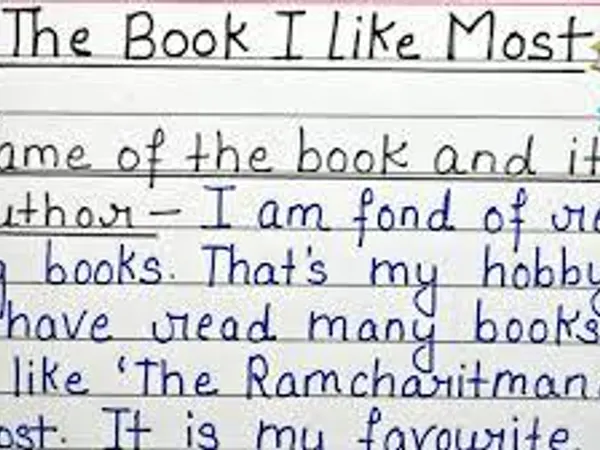 The Book I like Most
ame of the book and it
uthor - I am fond of re
g books. That's my hobby
have read many books
like 'The Ramcharitman
ost. It is my favourite